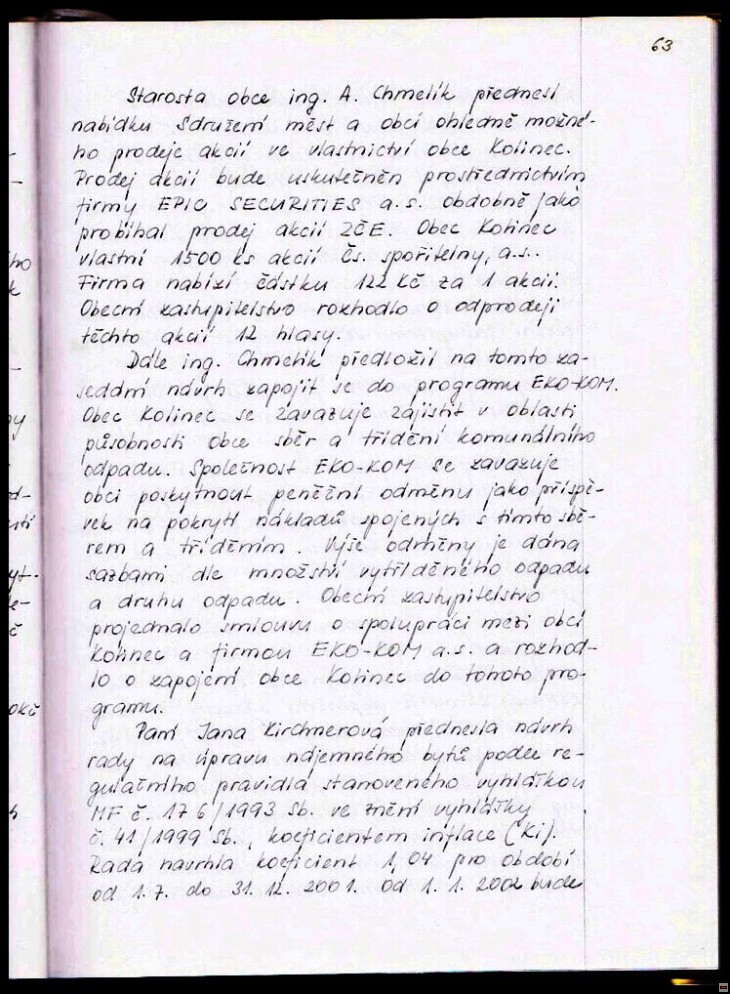 63
Starosta obce ing. A. Chmelík přednesl
nabídku Sdružení měst a obcí ohledně možné-
ho prodeje akcií ve vlastnictví obce Kolinec.
Prodej akcií bude uskutečněn prostřednictvím
firmy EPIC SECURITIES a.s. obdobně jako
probíhal prodej akcií ZČE. Obec Kolinec
vlastní 1500 ks akcií Čs. spořitelny, a.s..
Firma nabízí částku 122 Kč za 1 akcii.
Obecní zastupitelstvo rozhodlo o odprodeji
těchto akcií 12 hlasy.
Dále ing. Chmelík předložil na tomto za-
sedání návrh zapojit se do programu EKO-KOM.
Obec Kolinec se zavazuje zajistit v oblasti
působnosti obce sběr a třídění komunálního
odpadu. Společnost EKO-KOM se zavazuje
obci poskytnout peněžní odměnu jako příspě-
vek na pokrytí nákladů spojených s tímto sbě-
rem a tříděním. Výše odměny je dána
sazbami dle množství vytříděného odpadu
a druhu odpadu. Obecní zastupitelstvo
projednalo smlouvu o spolupráci mezi obcí
Kolinec a firmou EKO-KOM a.s. a rozhod-
lo o zapojení obce Kolinec do tohoto pro-
gramu.
Paní Jana Kirchnerová přednesla návrh
rady na úpravu nájemného bytů podle re-
gulačního pravidla stanoveného vyhláškou
MF č. 176/1993 Sb. ve znění vyhlášky
č. 41/1999 Sb., koeficientem inflace (Ki).
Rada navrhla koeficient 1,04 pro období
od 1.7. do 31.12. 2001. Od 1.1. 2002 bude